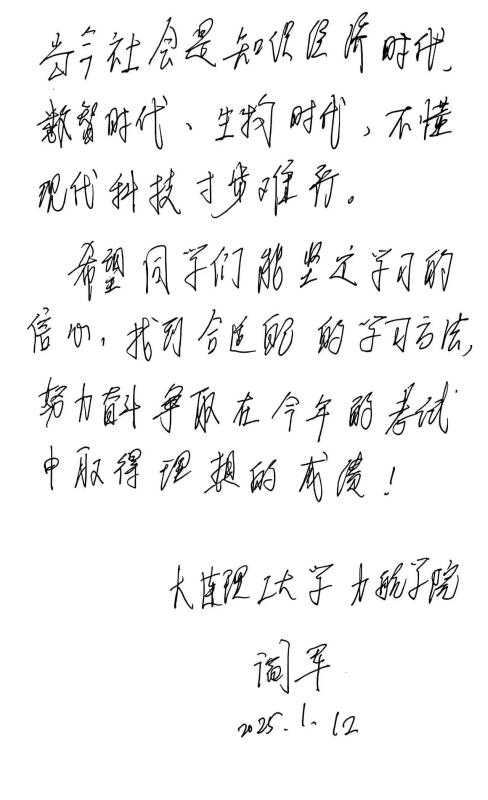 当今社会是知识经济时代,
数智时代、生物时代,不懂
现代科技寸步难行。
希望同学们能坚定学习的
信心,找到合适的的学习方法,
努力奋斗争取在今年的考试
中取得理想的成绩!
大连理工大学力航学院
阎军
2025.1.12